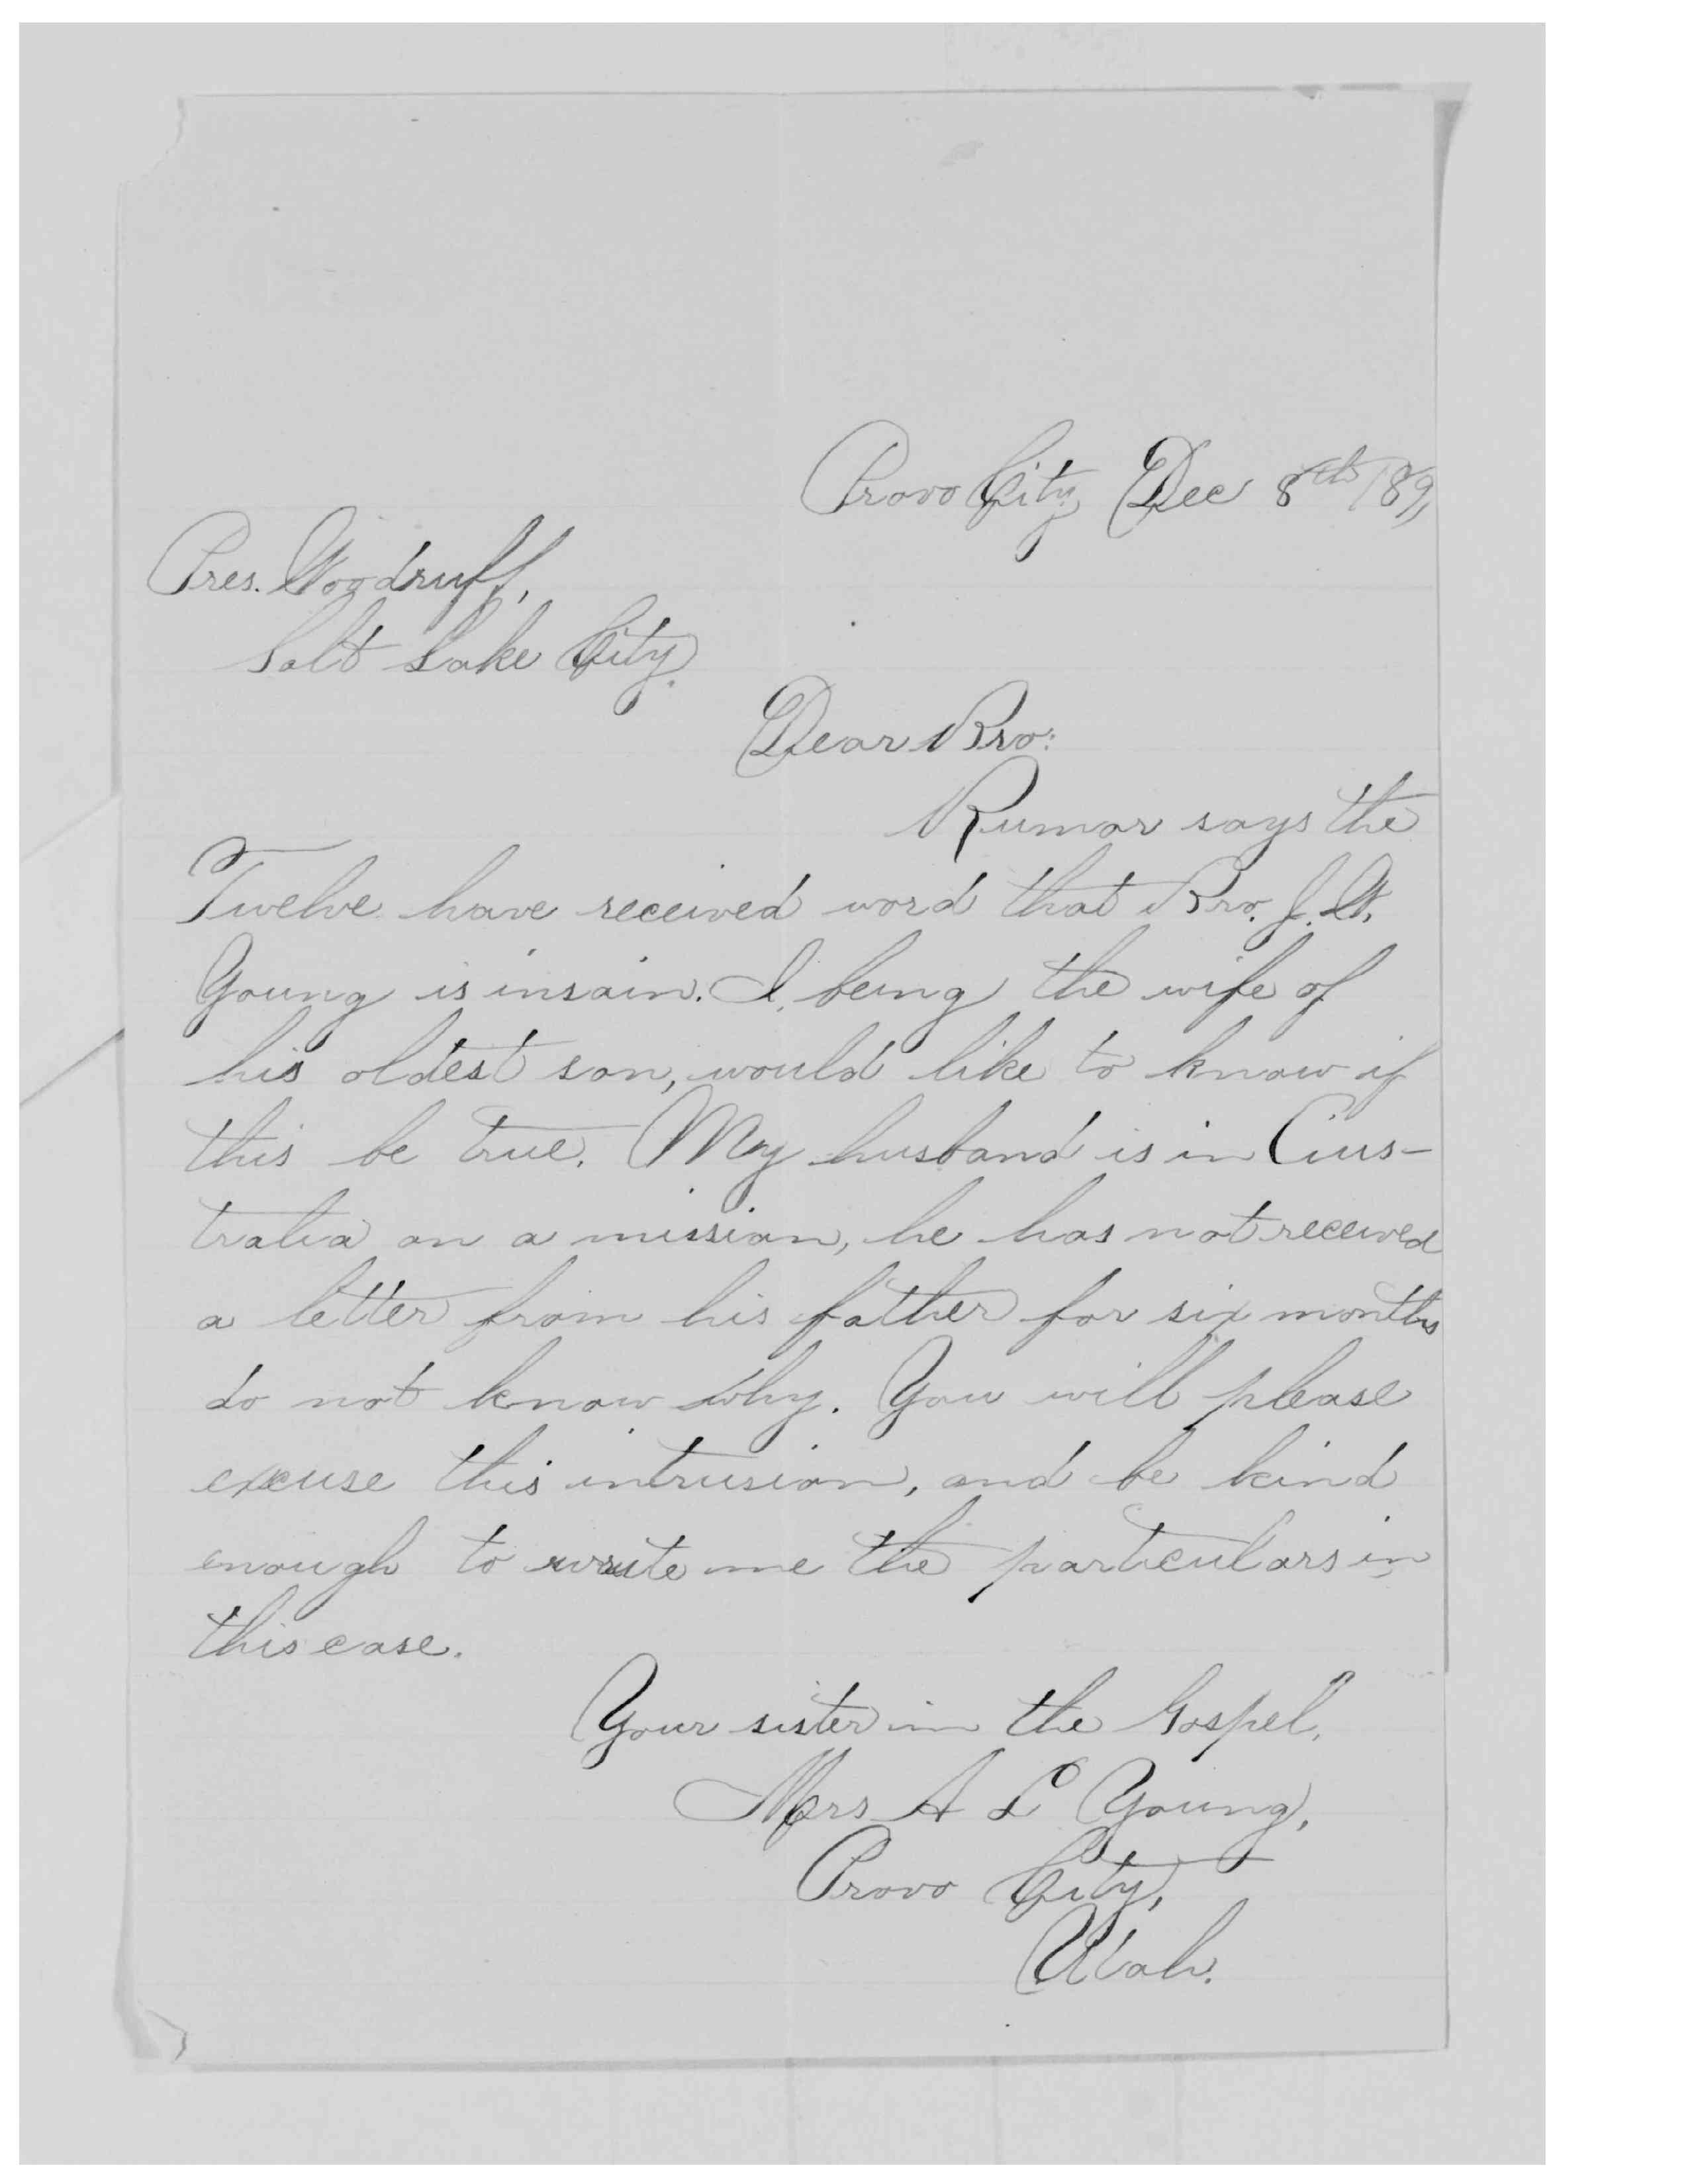 Provo City, Dec 8th 1891
Pres. Woodruff,
Salt Lake City.
Dear Bro:
Rumor says the
Twelve have received word that Bro. J. W.
Young is insain. I, being the wife of
his oldest son, would like to know if
this be true. My husband is in Aus-
tralia on a mission, he has not received
a letter from his father for six months
do not know why. You will please
excuse this intrusion, and be kind
enough to write me the particulars in
this case.
Your sister in the Gospel,
Mrs A L Young,
Provo City,
Utah.